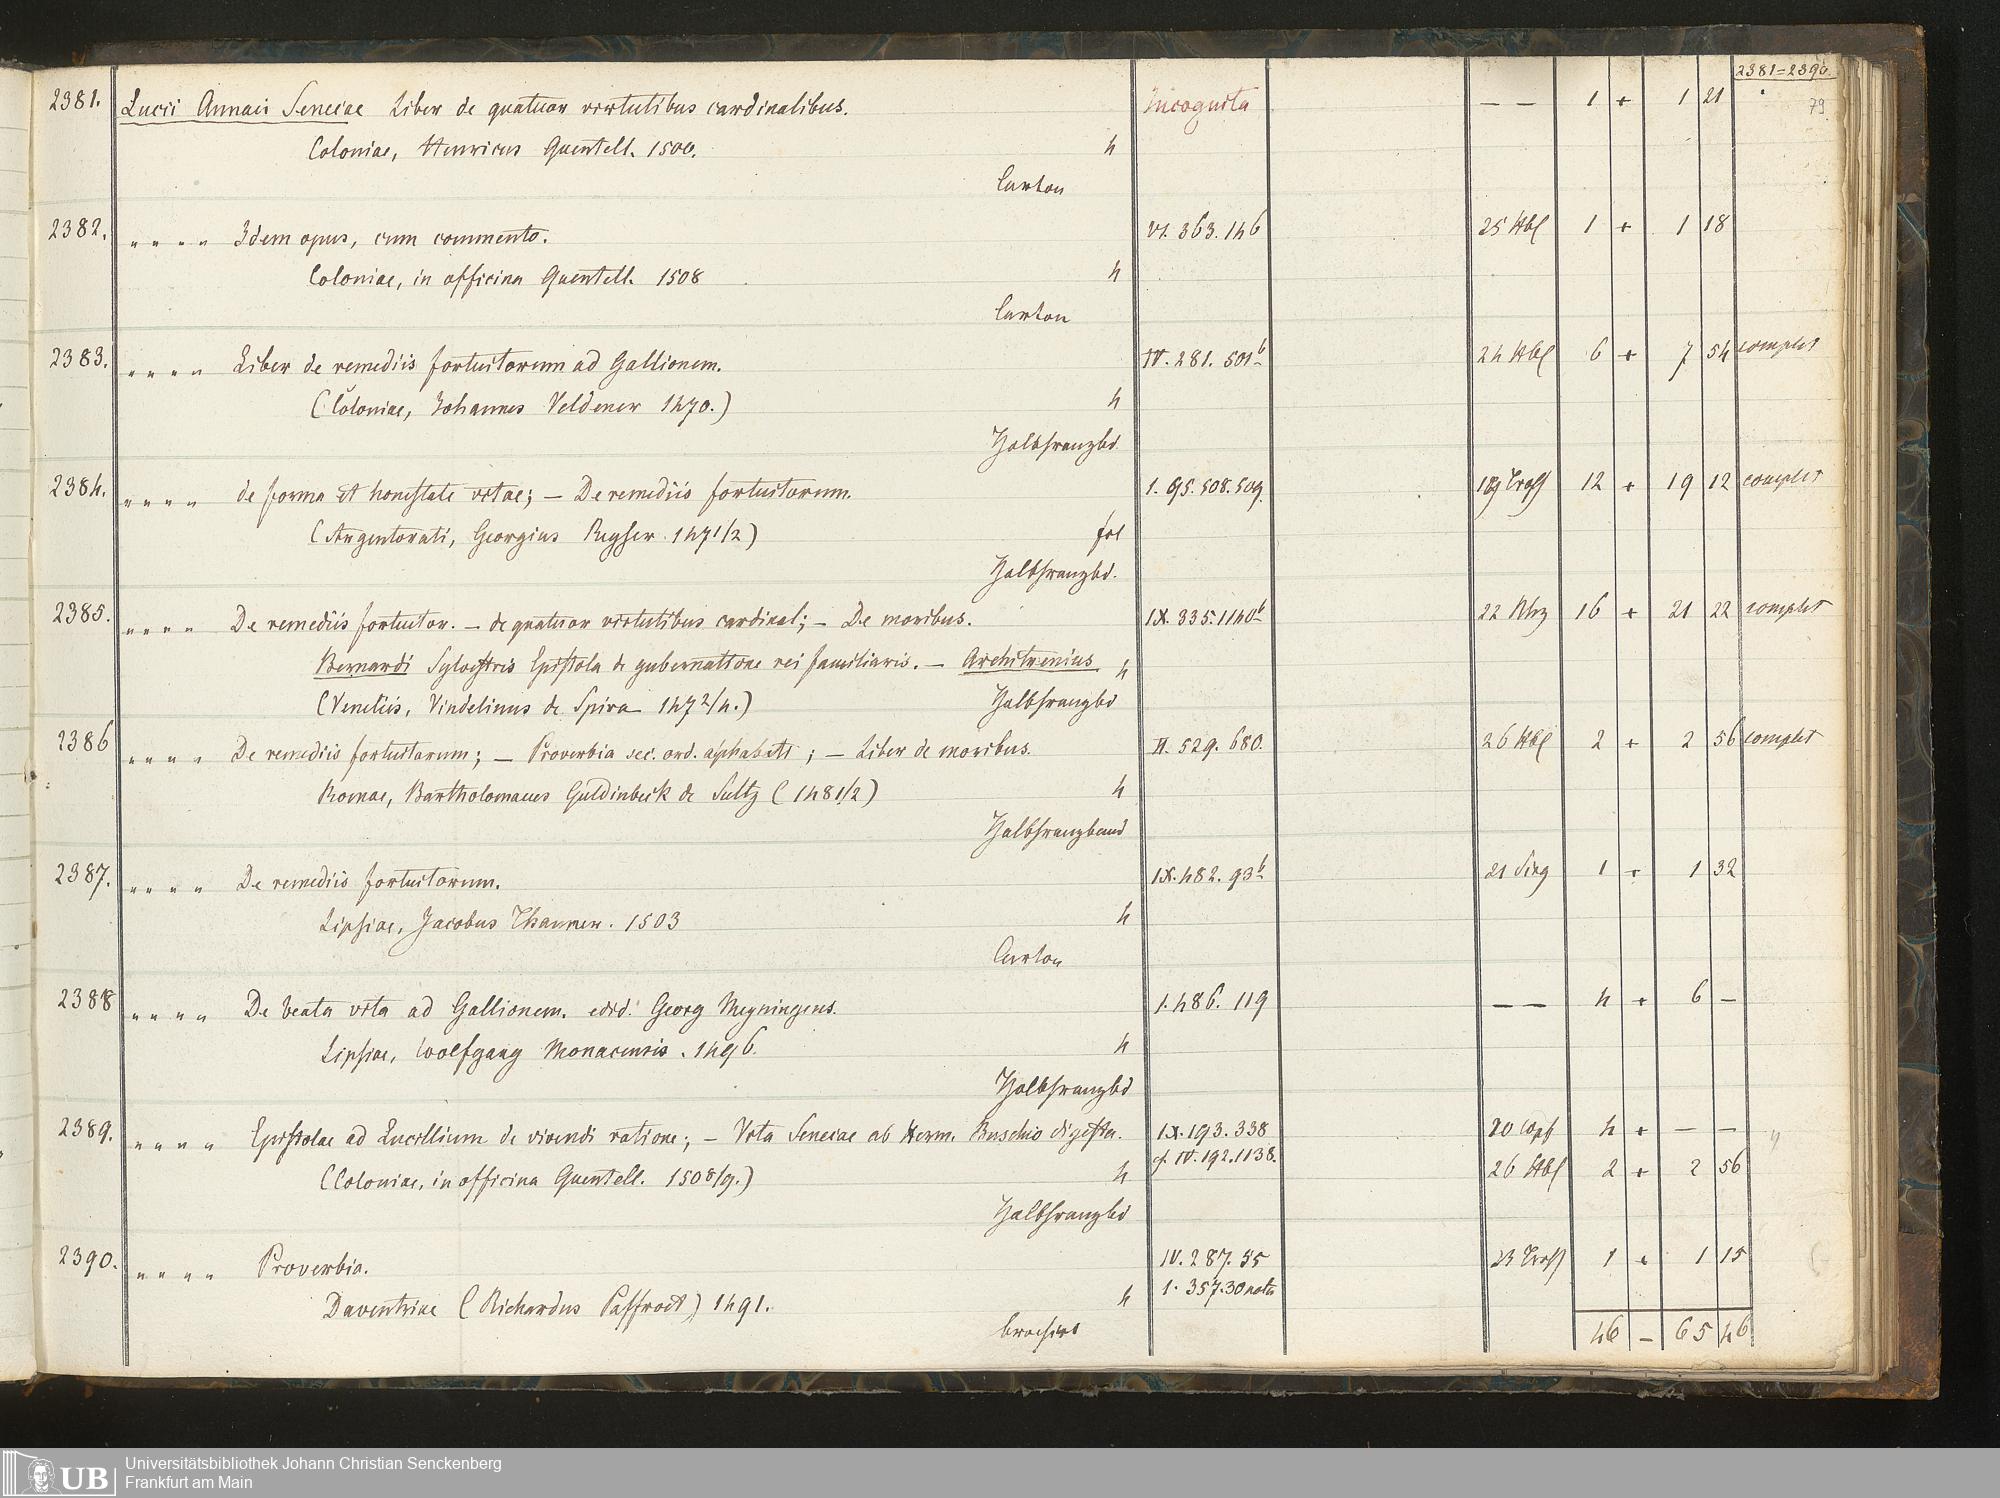 2381=2390.
79.
2381. Lucii Annaei Senecae Liber de quatuor virtutibus cardinalibus. Incognita — — 1 + 1 21
Coloniae, Henricus Quentell. 1500. 4
Carton
2382. " " " " Idem opus, cum commento. VI. 363. 146 25 Hbl 1 + 1 18
Coloniae, in officina Quentell. 1508 4
Carton
2383. " " " " Liber de remediis fortuitorum ad Gallionem. IV. 281. 501b 24 Hbl 6 + 7 54 complet
(Coloniae, Johannes Veldener 1470.) 4
Halbfranzbd.
2384. " " " " de forma et honestate vitae; — De remediis fortuitorum. I. 95. 508. 509. 12 + 19 12 complet
(Argentorati, Georgius Reyser. 1471/2) fol
Halbfranzbd.
2385. " " " " De remediis fortuitor. — de quatuor virtutibus cardinal; — De moribus. IX. 335. 1140b 22 16 + 21 22 complet
Bernardi Sylvestris Epistola de gubernatione rei familiaris. — Architrenius 4
(Venetiis, Vindelinus de Spira 1472/4.) Halbfranzbd
2386 " " " " De remediis fortuitorum; — Proverbia sec. ord. alphabeti; — Liber de moribus. II. 529. 680. 26 Hbl 2 + 2 56 complet
Romae, Bartholomaeus Guldinbeck de Sultz (1481/2) 4
Halbfranzband
2387. " " " " De remediis fortuitorum. IX. 482. 93b 21 1 + 1 32
Lipsiae, Jacobus Thanner. 1503 4
Carton
2388 " " " " De beata vita ad Gallionem. edid. Georg Meyningens. I. 486. 119 — — 4 + 6 —
Lipsiae, Wolfgang Monacensis. 1496. 4
Halbfranzbd
2389. " " " " Epistolae ad Lucillium de vivendi ratione; — Vita Senecae ab Herm. Buschio digesta. IX. 193. 338 20 4 + — —
cf. IV. 192. 1138. 26 Hbl 2 + 2 56
(Coloniae, in officina Quentell. 1508/9.) 4
Halbfranzbd
2390. " " " " Proverbia. IV. 287. 55 23 1 + 1 15
I. 357. 30 nota
Daventriae (Richardus Paffroet) 1491. 4
brochirt 46 — 65 46
UB
Universitätsbibliothek Johann Christian Senckenberg
Frankfurt am Main